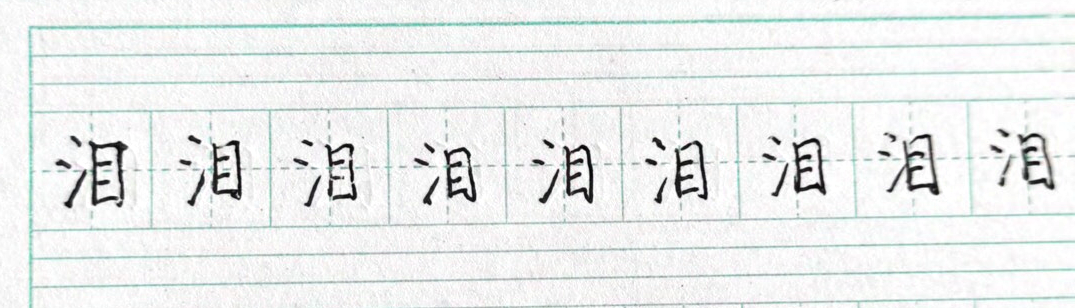 泪泪泪泪泪泪泪泪泪